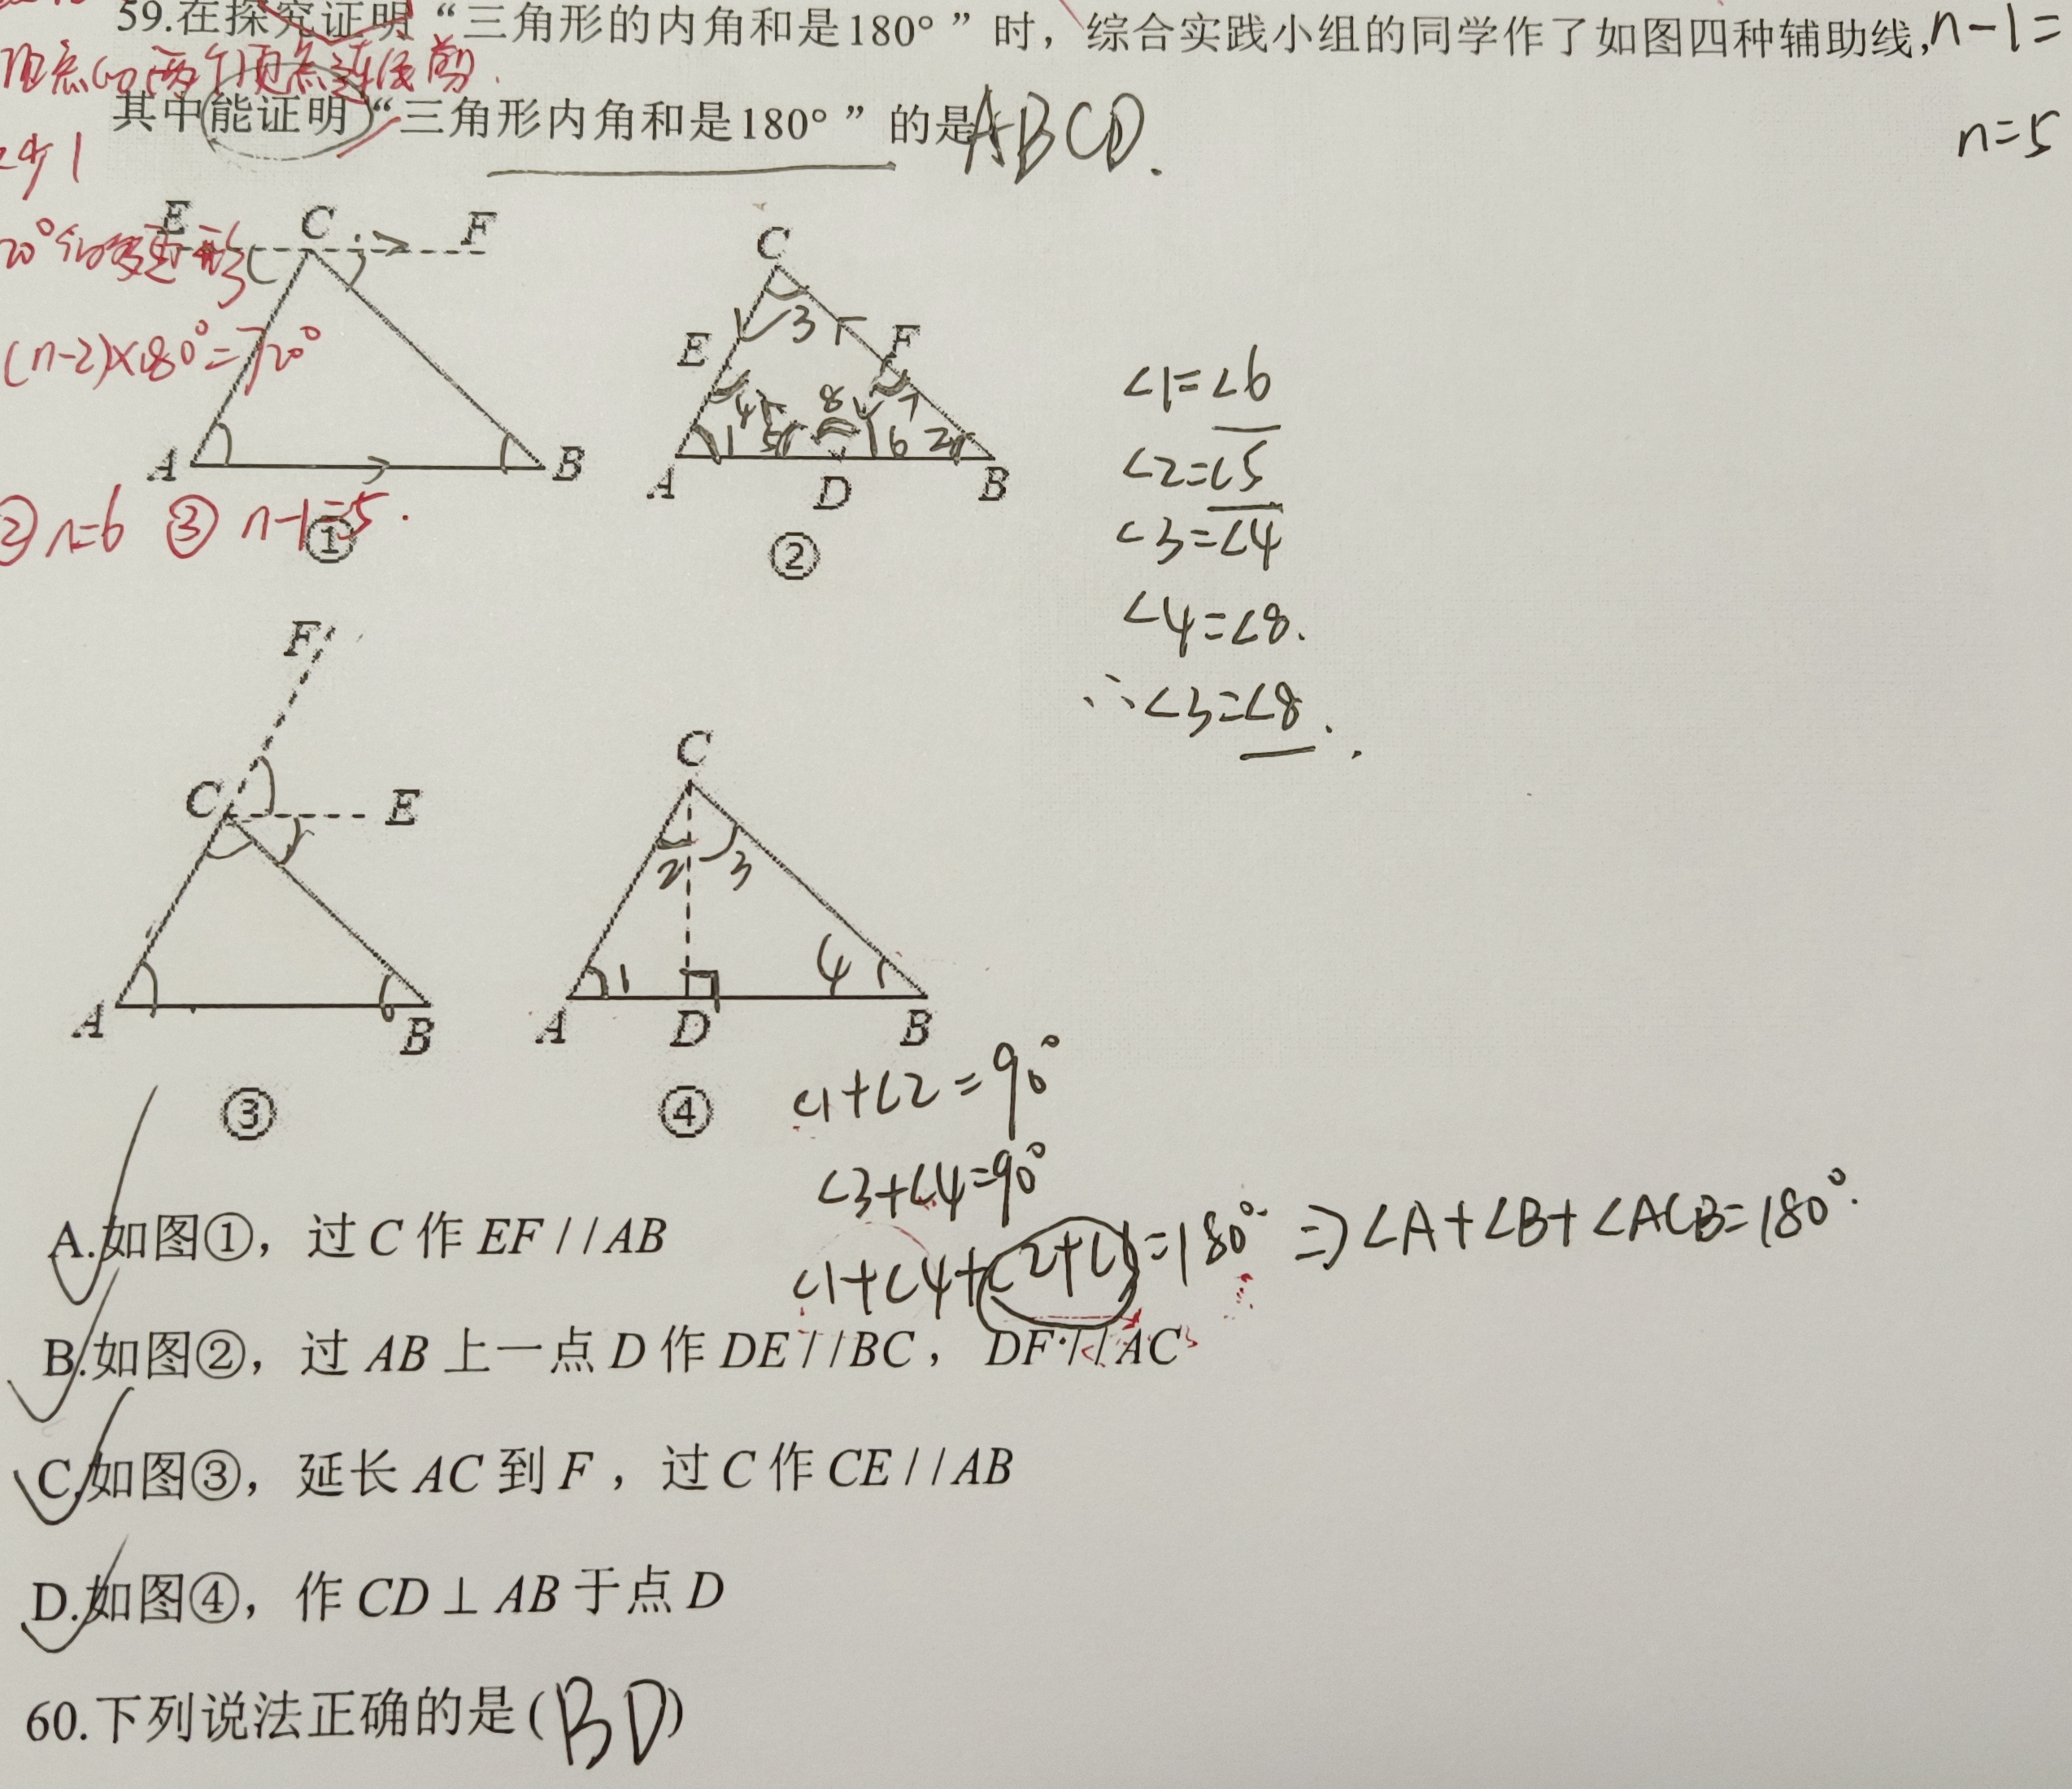 59.在探究证明“三角形的内角和是180°”时，综合实践小组的同学作了如图四种辅助线， n-1=
其中能证明“三角形内角和是180°”的是 ABCD.
n=5
(n-2)×180°=720°
② n=6 ③ n-1=5.
E C F
A B
①
C
E 3 F
4 8 7
1 5 6 2
A D B
②
∠1=∠6
∠2=∠5
∠3=∠4
∠4=∠8.
∴∠3=∠8.
F
C E
A B
③
C
2 3
1 4
A D B
④
∠1+∠2=90°
∠3+∠4=90°
=180° ⇒ ∠A+∠B+∠ACB=180°.
A.如图①，过C作EF//AB
B.如图②，过AB上一点D作DE//BC，DF//AC
C.如图③，延长AC到F，过C作CE//AB
D.如图④，作CD⊥AB于点D
60.下列说法正确的是(BD)